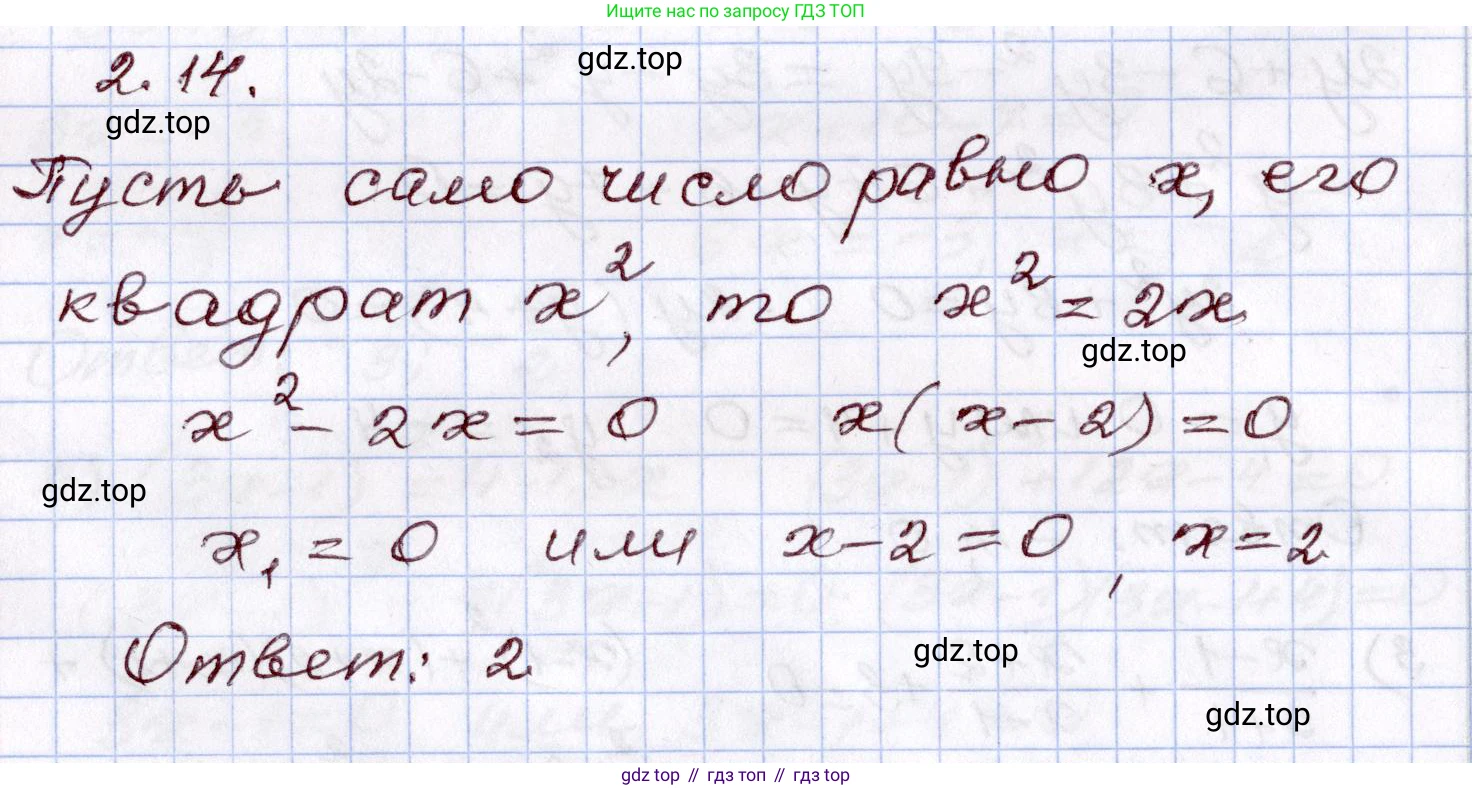 Ищите нас по запросу ГДЗ ТОП
2.14.
gdz.top
gdz.top
Пусть само число равно x, его
квадрат x², то x² = 2x
gdz.top
x² - 2x = 0 x(x - 2) = 0
gdz.top
x₁ = 0 или x - 2 = 0, x = 2
Ответ: 2
gdz.top
gdz.top
gdz.top // гдз топ // гдз top